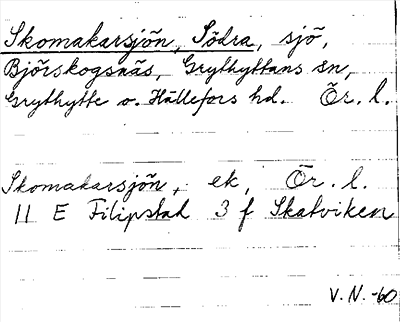 Skomakarsjön, Södra, sjö,
Björskogsnäs, Grythyttans sn,
Grythytte o. Hällefors hd. Ör. l.
Skomakarsjön, ek, Ör. l.
11 E Filipstad 3 f Skatviken
V.N.-60